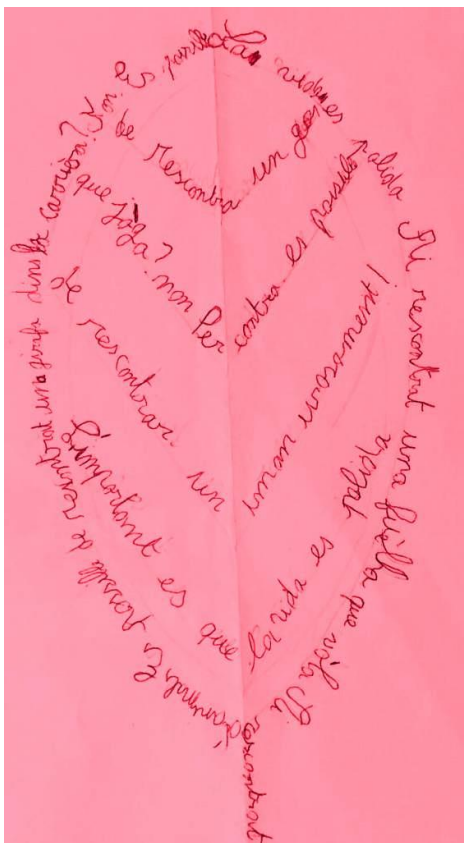 La vida es polida Ai rescontrat una fuèlha que vòla Ai rescontrat
Es possible de rescontrat una girafa dins la carrièra? Non. Es possible
de rescontra un gos
que jòga? non per contra es possible
de rescontrar un uman urosament!
L'important es que la vida es polida